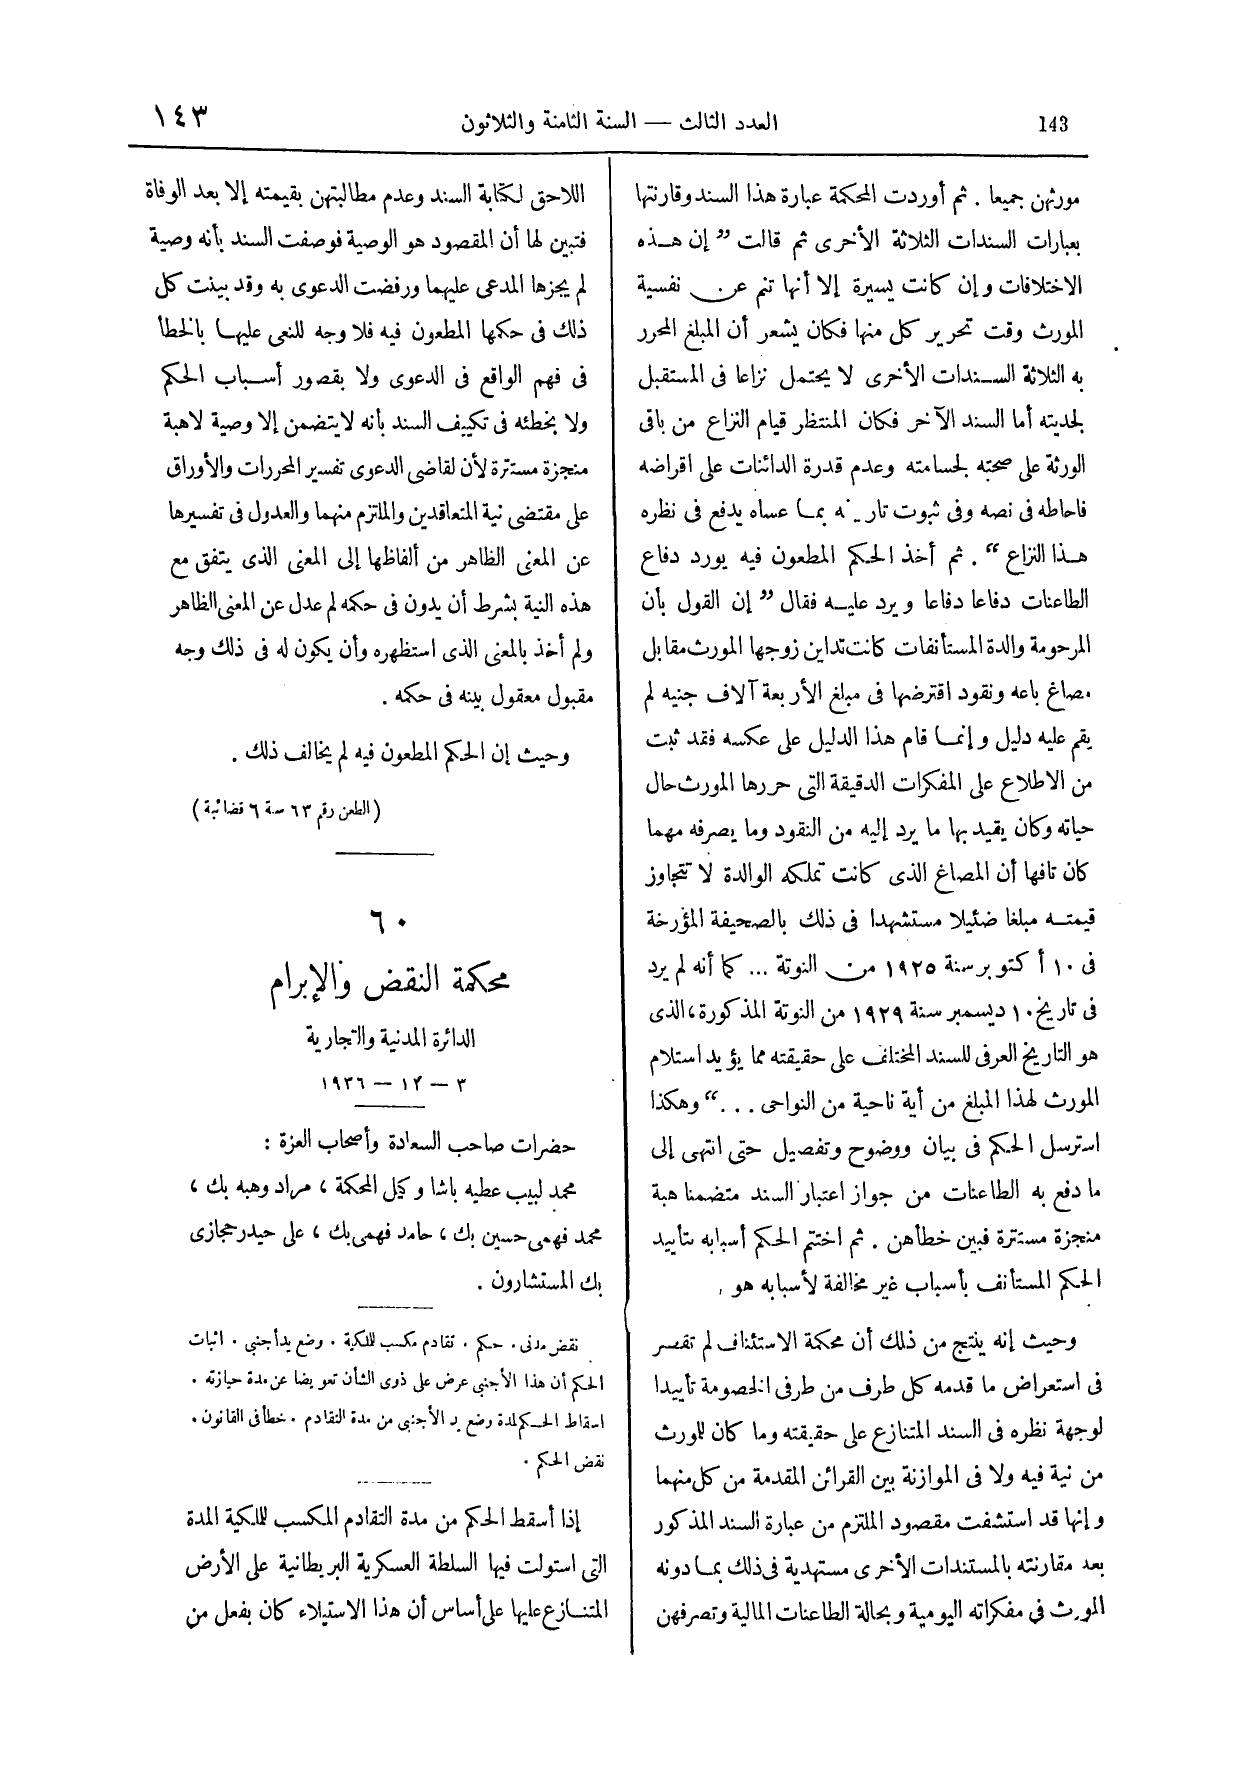 143
العدد الثالث — السنة الثامنة والثلاثون
١٤٣
مورثهن جميعا . ثم أوردت المحكمة عبارة هذا السند وقارنتها
بعبارات السندات الثلاثة الأخرى ثم قالت ” إن هذه
الاختلافات وإن كانت يسيرة إلا أنها تنم عن نفسية
المورث وقت تحرير كل منها فكان يشعر أن المبلغ المحرر
به الثلاثة السندات الأخرى لا يحتمل نزاعا فى المستقبل
لجديته أما السند الآخر فكان المنتظر قيام النزاع من باقى
الورثة على صحته لجسامته وعدم قدرة الدائنات على اقراضه
فاحاطه فى نصه وفى ثبوت تاريخه بما عساه يدفع فى نظره
هذا النزاع “ . ثم أخذ الحكم المطعون فيه يورد دفاع
الطاعنات دفاعا دفاعا ويرد عليه فقال ” إن القول بأن
المرحومة والدة المستأنفات كانت تداين زوجها المورث مقابل
مصاغ باعه ونقود اقترضها فى مبلغ الأربعة آلاف جنيه لم
يقم عليه دليل وإنما قام هذا الدليل على عكسه فقد ثبت
من الاطلاع على المفكرات الدقيقة التى حررها المورث حال
حياته وكان يقيد بها ما يرد إليه من النقود وما يصرفه مهما
كان تافها أن المصاغ الذى كانت تملكه الوالدة لا تتجاوز
قيمته مبلغا ضئيلا مستشهدا فى ذلك بالصحيفة المؤرخة
فى ١٠ أكتوبر سنة ١٩٢٥ من النوتة ... كما أنه لم يرد
فى تاريخ ١٠ ديسمبر سنة ١٩٢٩ من النوتة المذكورة، الذى
هو التاريخ العرفى للسند المختلف على حقيقته مما يؤيد استلام
المورث لهذا المبلغ من أية ناحية من النواحى ...“ وهكذا
استرسل الحكم فى بيان ووضوح وتفصيل حتى انتهى إلى
ما دفع به الطاعنات من جواز اعتبار السند متضمنا هبة
منجزة مستترة فبين خطأهن . ثم اختتم الحكم أسبابه بتأييد
الحكم المستأنف بأسباب غير مخالفة لأسبابه هو .
وحيث إنه ينتج من ذلك أن محكمة الاستئناف لم تقصر
فى استعراض ما قدمه كل طرف من طرفى الخصومة تأييدا
لوجهة نظره فى السند المتنازع على حقيقته وما كان للمورث
من نية فيه ولا فى الموازنة بين القرائن المقدمة من كل منهما
وإنها قد استشفت مقصود الملتزم من عبارة السند المذكور
بعد مقارنته بالمستندات الأخرى مستهدية فى ذلك بما دونه
المورث فى مفكراته اليومية وبحالة الطاعنات المالية وتصرفهن
اللاحق لكتابة السند وعدم مطالبتهن بقيمته إلا بعد الوفاة
فتبين لها أن المقصود هو الوصية فوصفت السند بأنه وصية
لم يجزها المدعى عليهما ورفضت الدعوى به وقد بينت كل
ذلك فى حكمها المطعون فيه فلا وجه للنعى عليها بالخطأ
فى فهم الواقع فى الدعوى ولا بقصور أسباب الحكم
ولا بخطئه فى تكييف السند بأنه لا يتضمن إلا وصية لا هبة
منجزة مستترة لأن لقاضى الدعوى تفسير المحررات والأوراق
على مقتضى نية المتعاقدين والملتزم منهما والعدول فى تفسيرها
عن المعنى الظاهر من ألفاظها إلى المعنى الذى يتفق مع
هذه النية بشرط أن يدون فى حكمه لم عدل عن المعنى الظاهر
ولم أخذ بالمعنى الذى استظهره وأن يكون له فى ذلك وجه
مقبول معقول بينه فى حكمه .
وحيث إن الحكم المطعون فيه لم يخالف ذلك .
(الطعن رقم ٦٣ سنة ٦ قضائية)
٦٠
محكمة النقض والإبرام
الدائرة المدنية والتجارية
٣ — ١٢ — ١٩٣٦
حضرات صاحب السعادة وأصحاب العزة :
محمد لبيب عطيه باشا وكيل المحكمة ، مراد وهبه بك ،
محمد فهمى حسين بك ، حامد فهمى بك ، على حيدر حجازى
بك المستشارون .
نقض مدنى . حكم . تقادم مكسب للملكية . وضع يد أجنبى . اثبات
الحكم أن هذا الأجنبى عرض على ذوى الشأن تعويضا عن مدة حيازته .
اسقاط الحكم لمدة وضع يد الأجنبى من مدة التقادم . خطأ فى القانون .
نقض الحكم .
إذا أسقط الحكم من مدة التقادم المكسب للملكية المدة
التى استولت فيها السلطة العسكرية البريطانية على الأرض
المتنازع عليها على أساس أن هذا الاستيلاء كان بفعل من